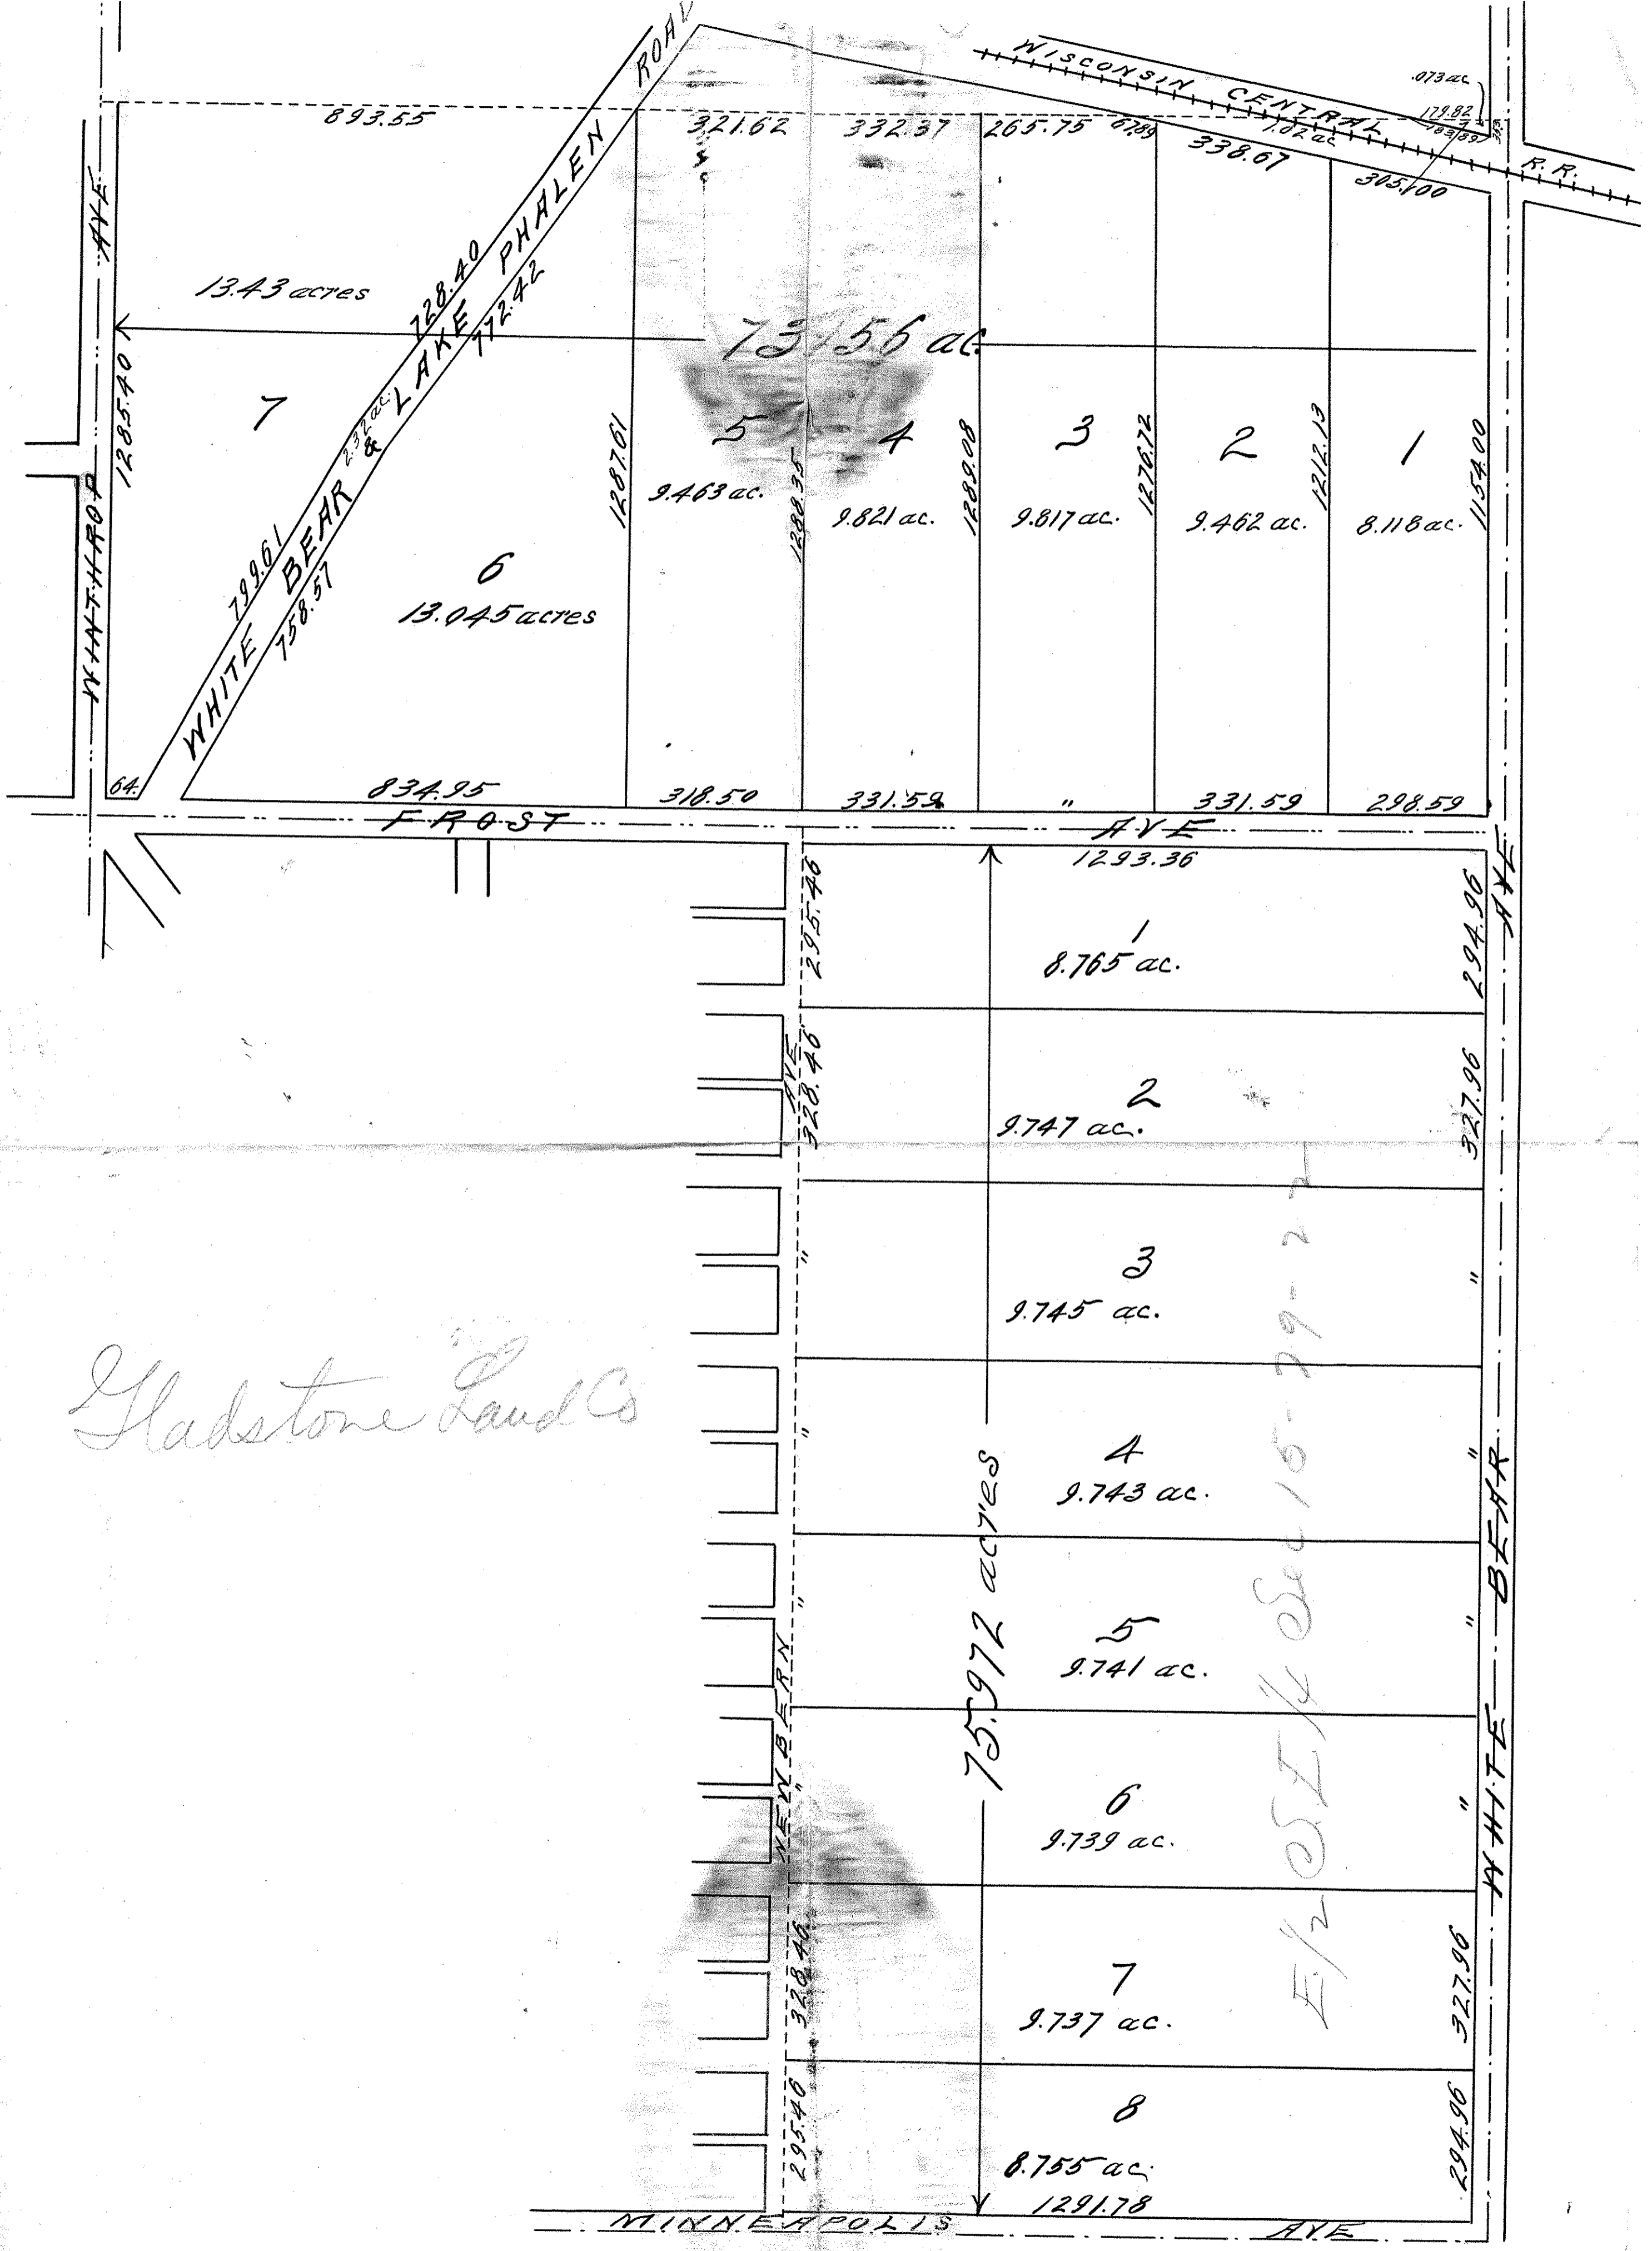 WISCONSIN CENTRAL R. R.
.073 ac
179.82
1.02 ac
893.55
321.62
332.37
265.75
67.89
338.67
305.100
WHITE BEAR & LAKE PHALEN ROAD
WINTHROP AVE
13.43 acres
728.40
772.42
73.156 ac.
1285.40
7
2.32 ac.
1287.61
5
9.463 ac.
1288.35
4
9.821 ac.
1289.08
3
9.817 ac.
1276.72
2
9.462 ac.
1212.13
1
8.118 ac.
1154.00
799.61
758.57
6
13.045 acres
64.
834.95
318.50
331.59
"
331.59
298.59
FROST AVE
1293.36
295.46
1
8.765 ac.
294.96
328.46
2
9.747 ac.
327.96
"
3
9.745 ac.
"
"
4
9.743 ac.
"
75.972 acres
"
5
9.741 ac.
"
"
6
9.739 ac.
"
328.46
7
9.737 ac.
327.96
295.46
8
8.755 ac.
294.96
1291.78
NEWBERN AVE
WHITE BEAR AVE
MINNEAPOLIS AVE
Gladstone Land Co
E 1/2 S.E 1/4 Sec 15-29-22